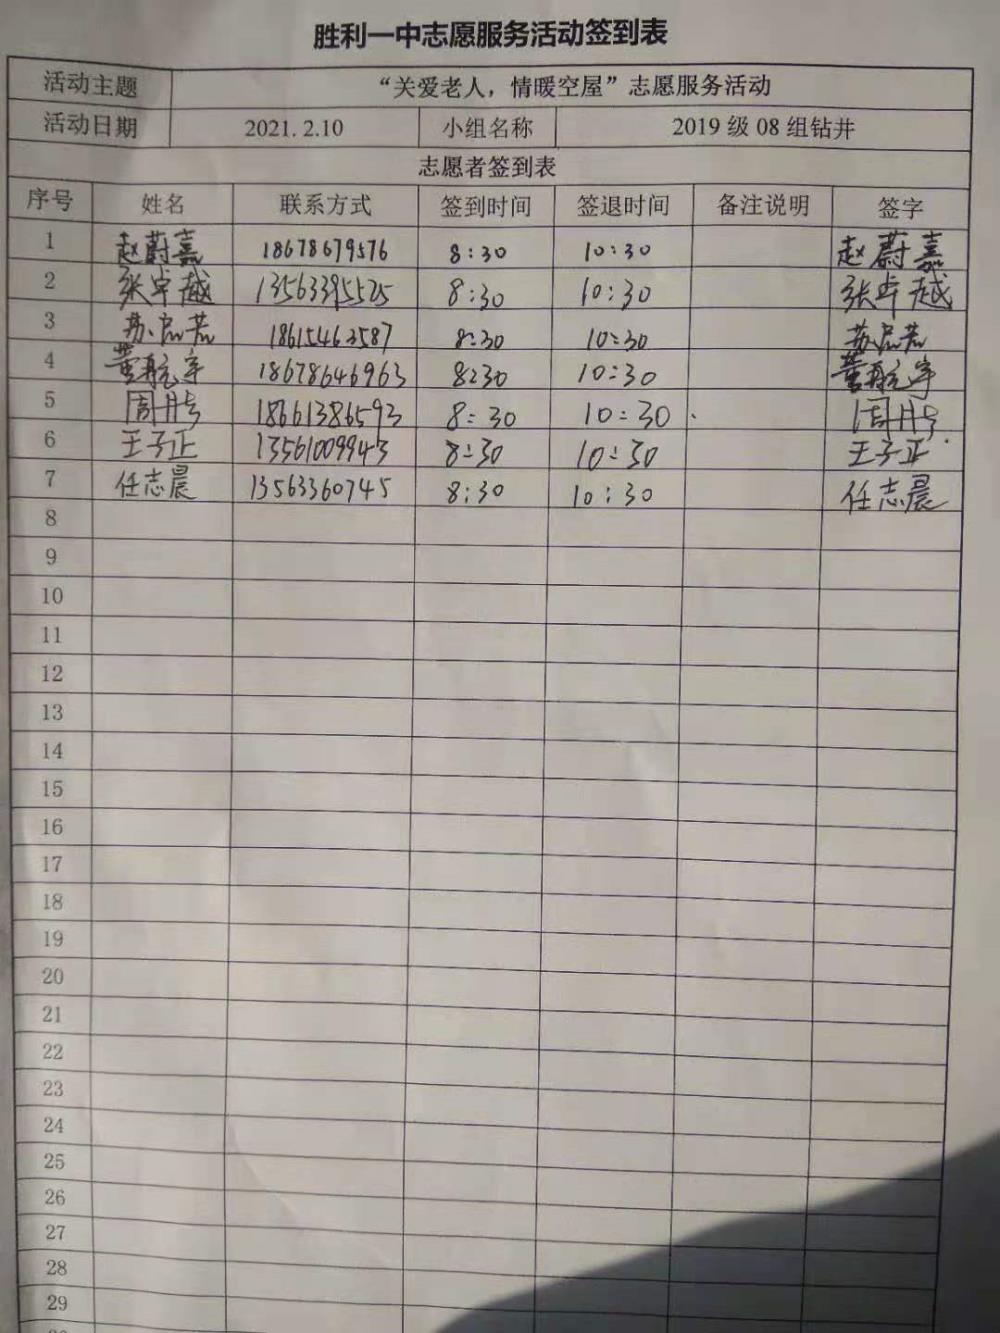 胜利一中志愿服务活动签到表
活动主题 “关爱老人，情暖空屋”志愿服务活动
活动日期 2021.2.10 小组名称 2019级08组钻井
志愿者签到表
序号 姓名 联系方式 签到时间 签退时间 备注说明 签字
1 赵蔚嘉 18678679576 8:30 10:30 赵蔚嘉
2 张卓越 13563395525 8:30 10:30 张卓越
3 苏启芸 18615463587 8:30 10:30 苏启芸
4 董航宇 18678646963 8:30 10:30 董航宇
5 周 18661386593 8:30 10:30 周
6 王子正 13561009943 8:30 10:30 王子正
7 任志晨 13563360745 8:30 10:30 任志晨
8
9
10
11
12
13
14
15
16
17
18
19
20
21
22
23
24
25
26
27
28
29